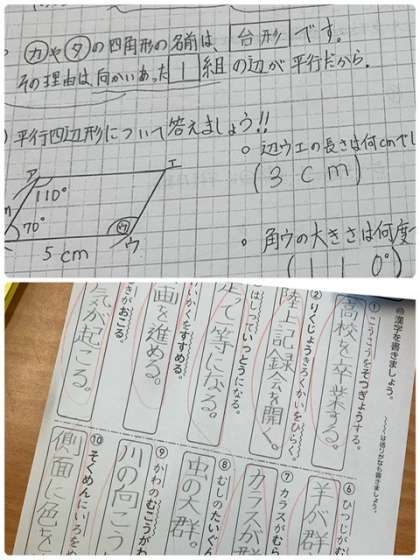 ㋕や㋟の四角形の名前は、台形です。
その理由は、向かいあった1組の辺が平行だから。
平行四辺形について答えましょう!!
ア
エ
110°
70°
ウ
5cm
○ 辺ウエの長さは何cmでし
(3cm)
○ 角ウの大きさは何度
(110°)
漢字を書きましょう。
①こうこうをそつぎょうする。
高校を卒業する。
②りくじょうきろくかいをひらく。
陸上記録会を開く。
はしっていっとうになる。
走って一等になる。
いかくをすすめる。
画を進める。
きがおこる。
気が起こる。
⑥ひつじがむ
羊が群
⑦カラスがむら
カラスが群
⑧むしのたいぐん
虫の大群。
⑨かわのむこうがわ
川の向こう
⑩そくめんにいろをぬ
側面に色を